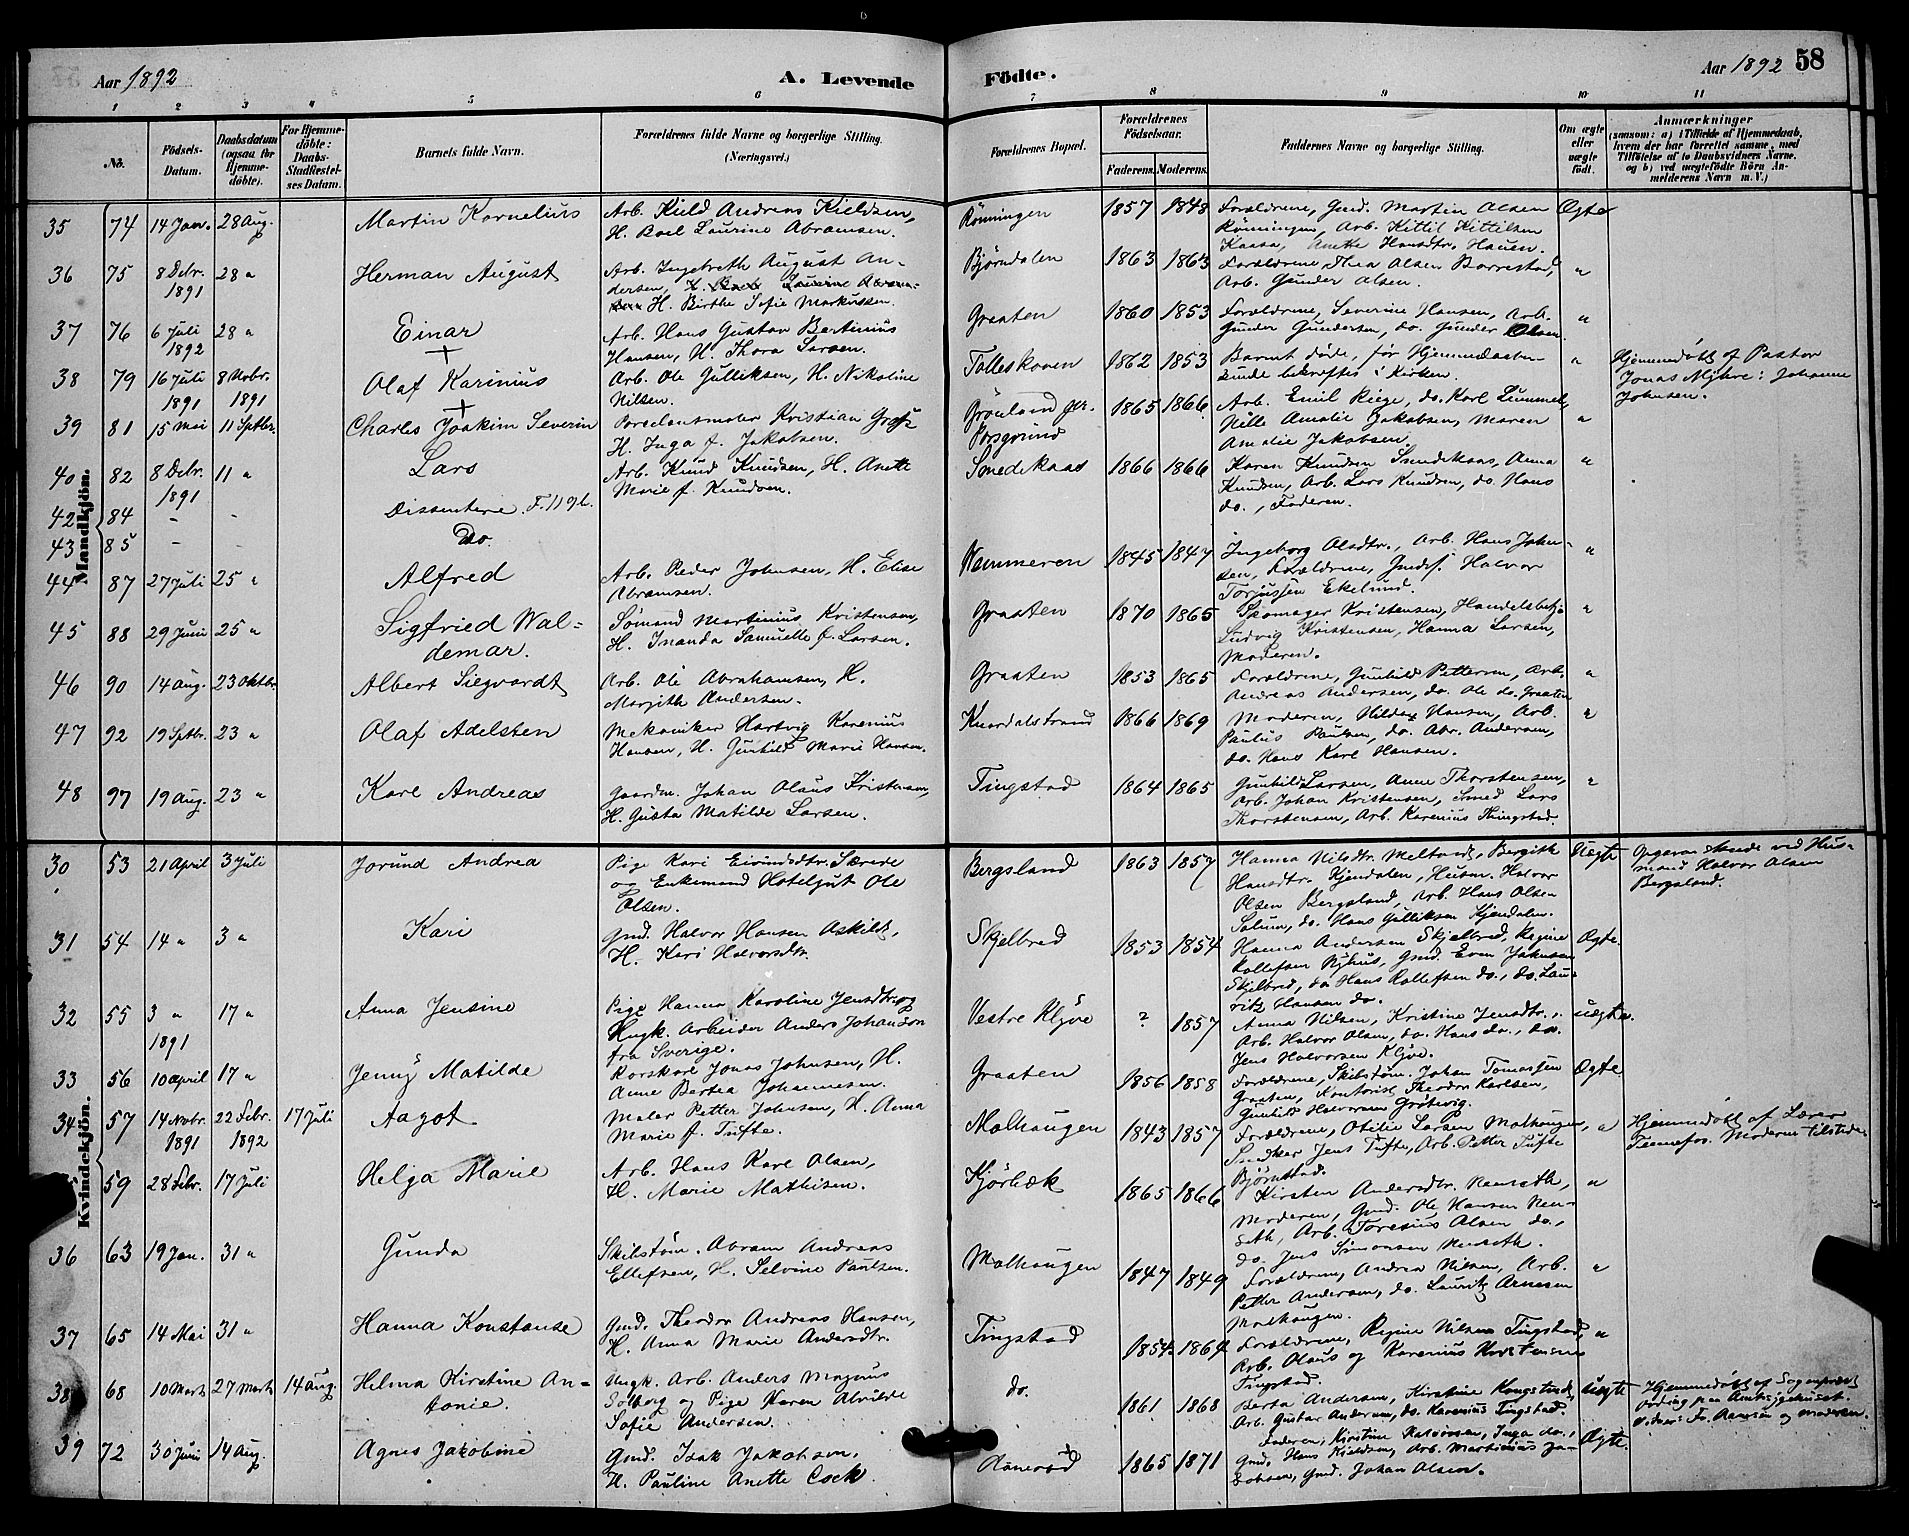 Aar 1892
A. Levende
Födte.
Aar 1892
58
1 2 3 4 5 6 7 8 9 10 11
No.
Födsels-
Datum.
Daabsdatum
(ogsaa for
Hjemme-
döbte).
For Hjemme-
döbte:
Daabs-
Stadfæstel-
ses Datum.
Barnets fulde Navn.
Forældrenes fulde Navne og borgerlige Stilling.
(Næringsvei.)
Forældrenes Bopæl.
Forældrenes
Födselsaar.
Faderens. Moderens.
Faddernes Navne og borgerlige Stilling.
Om ægte
eller
uægte
födt.
Anmærkninger
(saasom: a) i Tilfælde af Hjemmedaab,
hvem der har forrettet samme, med
Tilföielse af to Daabsvidners Navne,
og b) ved uægtefödte Börn An-
melderens Navn m. V.)
Mandkjön.
35 74 14 Jan. 28 Aug. Martin Kornelius
Arb. Kield Andreas Kieldsen,
H. Boel Laurine Abramsen.
Rönningen 1857 1848
Forældrene, Gmd. Martin Olsen
Rönningen, Arb. Kittil Kittilsen
Kaasa, Anethe Hansdtr. Hauen.
Ægte
36 75 8 Debr. 1891 28 " Herman August
Arb. Ingebreth August An-
dersen,
H. Birthe Sofie Markussen.
Bjørndalen 1863 1863
Forældrene, Thea Olsen Borrestad,
Arb. Gunder Olsen.
"
37 76 6 Juli 1892 28 " Einar
Arb. Hans Gustav Bertinius
Hansen, H. Thora Larsen.
Graaten 1860 1853
Forældrene, Severine Hansen, Arb.
Gunder Gundersen, do. Gunder Olsen
"
38 79 16 Juli 1891 8 Novbr. 1891 + Olaf Karinius
Arb. Ole Gulliksen, H. Nikoline
Nilsen.
Tolleskoven 1862 1853
Barnet døde, før Hjemmedaaben
kunde bekræftes i Kirken.
"
Hjemmedøbt af Pastor
Jonas Myhre: Johanne
Johnsen.
39 81 15 Mai 11 Septbr. + Charles Joakim Severin
Porcelænsmaler Kristian Groß
H. Inga f. Jakobsen.
Grönland pr.
Porsgrund 1865 1866
Arb. Emil Riege, do. Karl Lummel,
Nille Amalie Jakobsen, Maren
Amalie Jakobsen.
"
40 82 8 Debr. 1891 11 " Lars
Arb. Knud Knudsen, H. Anette
Marie f. Knudsen.
Smedekaas 1866 1866
Karen Knudsen Smedekaas, Anna
Knudsen, Arb. Lars Knudsen, do. Hans
do., Faderen.
"
42 84 - - Dissentere. F. 11 gb.
43 85 - - Do.
44 87 27 Juli 25 " Alfred
Arb. Peder Johnsen, H. Elise
Abramsen.
Kammeren 1845 1847
Ingeborg Olsdtr., Arb. Hans John-
sen, Forældrene, Gmdf. Halvor
Torjussen Ekelund.
"
45 88 29 Juni 25 " Sigfried Wal-
demar.
Sømand Martinius Kristensen,
H. Inanda Samuelle f. Larsen.
Graaten 1870 1865
Skomager Kristensen, Handelsbetj.
Ludvig Kristensen, Hanna Larsen,
Moderen.
"
46 90 14 Aug. 23 Oktbr. Albert Siegvardt
Arb. Ole Abrahamsen, H.
Margithe Andersen.
Graaten 1853 1865
Forældrene, Gunhild Pettersen, Arb.
Andreas Andersen, do. Ole do. Graaten
"
47 92 19 Septbr. 23 " Olaf Adelsten
Mekaniker Hartvig Karenius
Hansen, H. Gunhild Marie Hansen.
Knardalstrand 1866 1869
Moderen, Hilda Hansen, Arb.
Paulus Paulsen, do. Abr. Andersen,
do. Hans Karl Hansen.
"
48 97 19 Aug. 23 " Karl Andreas
Gaardm. Johan Olaus Kristensen,
H. Gusta Matilde Larsen.
Tingstad 1864 1865
Gunhild Larsen, Anne Thorstensen,
Arb. Johan Kristensen, Smed Lars
Thorstensen, Arb. Karenius Thingstad.
"
Kvindekjön.
30 53 21 April 3 Juli Jorund Andrea
Pige Kari Eivindsdtr. Særede
og Enkemand Hotelgut Ole
Olsen.
Bergsland 1863 1857
Hanna Nilsdtr. Meltand, Bergith
Hansdtr. Kjendalen, Husm. Halvor
Olsen Bergsland, Arb. Hans Olsen
Solum, do. Hans Gulliksen Kjendalen.
Uægte
Opgaven skede ved Hus-
mand Halvor Olsen
Bergsland.
31 54 14 " 3 " Kari
Gmd. Halvor Hansen Askildt,
H. Kari Halvorsdtr.
Skjelbred 1853 1854
Hanna Andersen Skjelbred, Regine
Rollefsen Nyhus, Gmd. Even Jakobsen
Skjelbred, do. Hans Rollefsen do., do. Lau-
ritz Hansen do.
Ægte.
32 55 3 " 1891 17 " Anna Jensine
Pige Hanna Karoline Jensdtr. og
Ungk. Arbeider Anders Johanson
fra Sverige.
Vestre Klyve ? 1857
Anna Nilsen, Kristine Jensdtr.,
Arb. Halvor Olsen, do. Hans do., do.
Jens Halvorsen Klyve.
uægte.
33 56 10 April 17 " Jenny Matilde
Korskarl Jonas Johnsen, H.
Anne Bertea Johannesen.
Graaten 1856 1858
Forældrene, Skilstøm. Johan Tomassen
Graaten, Kontorist Theodor Karlsen,
Gunhild Halvorsen Grötsvig.
Ægte.
34 57 14 Novbr. 1891 22 Febr. 1892 17 Juli Aagot
Maler Petter Johnsen, H. Anna
Marie f. Tufte.
Molhaugen 1843 1857
Forældrene, Otilie Larsen Molhaugen,
Snedker Jens Tufte, Arb. Petter Tufte
Björnstad.
"
Hjemmedøbt af Lærer
Tennefos. Moderen tilstede
59 28 Febr. 17 Juli Helga Marie
Arb. Hans Karl Olsen,
H. Marie Mathisen.
Kjörbæk 1865 1866
Kirsten Andersdtr. Nenseth,
Moderen, Gmd. Ole Hansen Nen-
seth, Arb. Toresius Olsen do.,
do. Jens Simonsen Nenseth.
"
36 63 19 Jan. 31 " Gunda
Skilstöm. Abram Andreas
Ellefsen, H. Selvine Paulsen.
Molhaugen 1847 1849
Forældrene, Andrea Nilsen, Arb.
Petter Andersen, do. Lauritz Arnesen
Molhaugen.
"
37 65 14 Mai 31 " Hanna Konstanse
Gmd. Theodor Andreas Hansen,
H. Anna Marie Andersdtr.
Tingstad 1854 1864
Forældrene, Regine Nilsen Tingstad,
Arb. Olaus og Karenius Kristensens
Tingstad.
"
38 68 10 Marts 27 Marts 14 Aug. Helma Kirstine An-
tonie.
Ungk. Arb. Anders Magnus
Solberg og Pige Karen Alvilde
Sofie Andersen
do. 1861 1868
Berta Andersen, Kirstine Kongstend,
Arb. Gustav Andersen, do. Karenius Tingstad.
Uægte
Hjemmedøbt af Sogneprest
Föding paa Amtssygehuset.
Vidner: Fr. Aamesen og Moderen.
39 72 30 Juni 14 Aug. Agnes Jakobine
Gmd. Isak Jakobsen,
H. Pauline Anette Cock.
Hanerød 1865 1871
Faderen, Kirstine Halvorsen, Inga do.,
Gmd. Hans Kieldsen, Arb. Martinius Ja-
kobsen, Gmd. Johan Olsen.
Ægte.